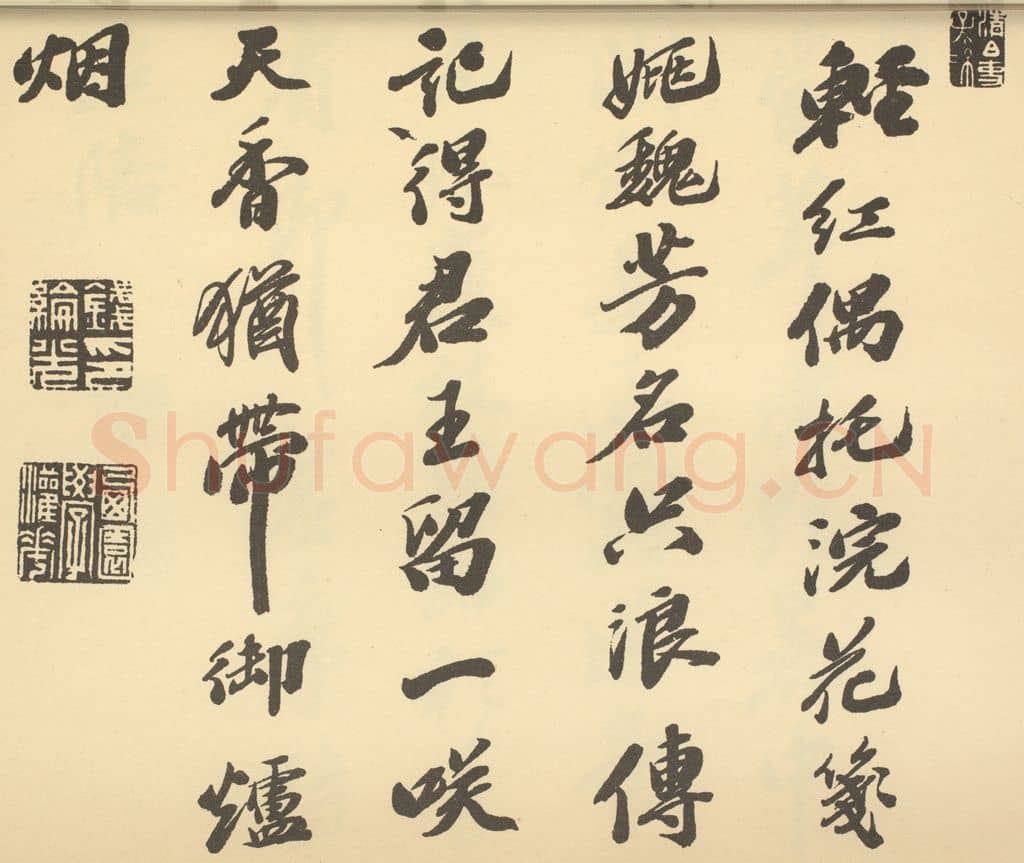 輕紅偶托浣花箋
姚魏芳名只浪傳
記得君王留一咲
天香猶帶御爐
烟
錢印
綸光
Shufawang.CN